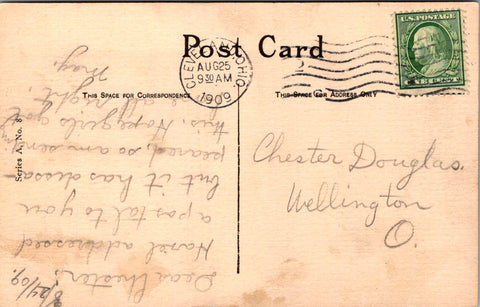 Post Card
U.S. POSTAGE
ONE CENT
CLEVELAND, OHIO.
AUG 25
9 30 AM
1909
2
THIS SPACE FOR CORRESPONDENCE
THIS SPACE FOR ADDRESS ONLY
Series A, No. 8
Chester Douglas.
Wellington
O.
8/24/09.
Dear Chester:
Hazel addressed
a postal to you
but it has dissa-
peared, so am sen
this. Hope girls got
all right.
May.